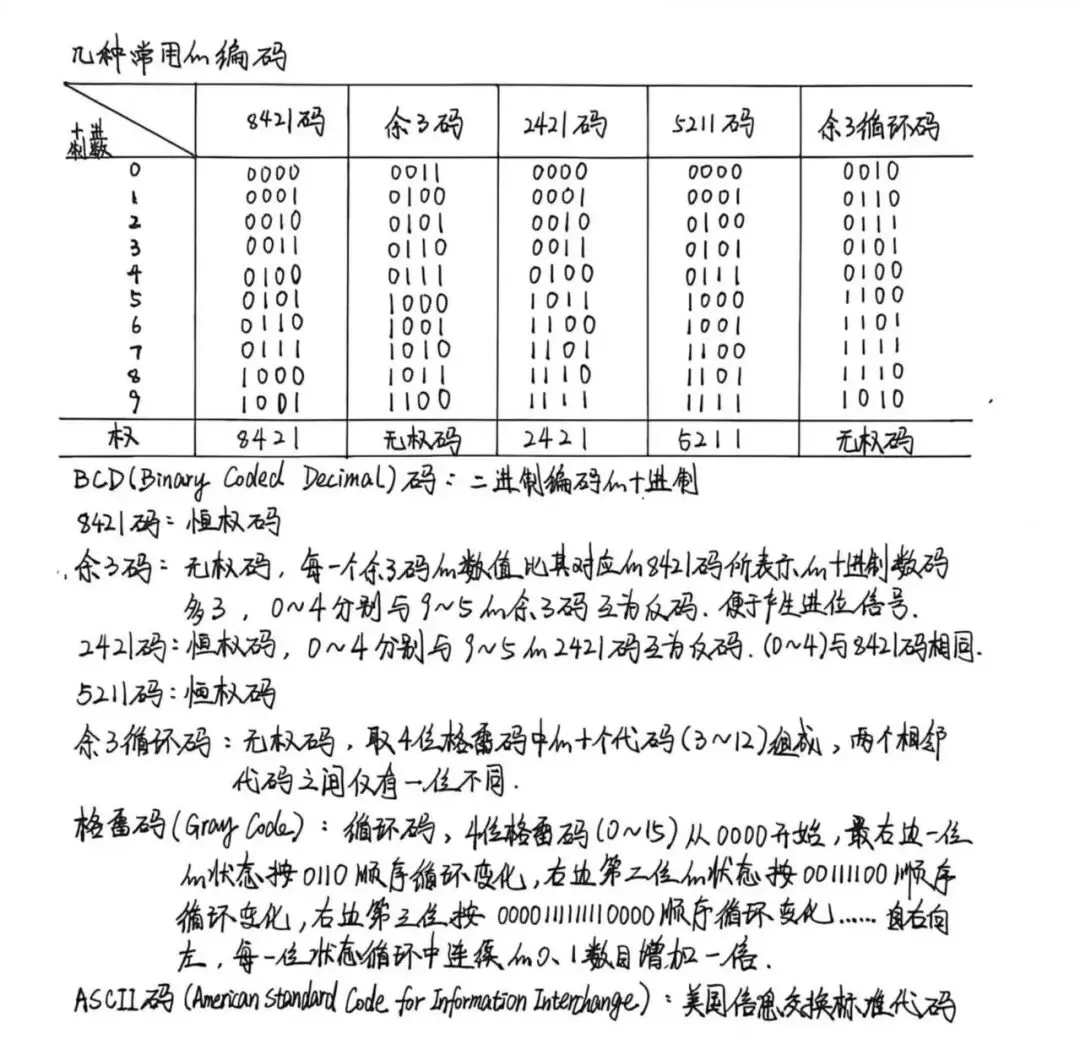 几种常用的编码
十进制数 8421码 余3码 2421码 5211码 余3循环码
0 0000 0011 0000 0000 0010
1 0001 0100 0001 0001 0110
2 0010 0101 0010 0100 0111
3 0011 0110 0011 0101 0101
4 0100 0111 0100 0111 0100
5 0101 1000 1011 1000 1100
6 0110 1001 1100 1001 1101
7 0111 1010 1101 1100 1111
8 1000 1011 1110 1101 1110
9 1001 1100 1111 1111 1010
权 8421 无权码 2421 5211 无权码
BCD(Binary Coded Decimal)码：二进制编码的十进制
8421码：恒权码
余3码：无权码，每一个余3码的数值比其对应的8421码所表示的十进制数码
多3，0~4分别与9~5的余3码互为反码.便于产生进位信号.
2421码：恒权码，0~4分别与9~5的2421码互为反码.(0~4)与8421码相同.
5211码：恒权码
余3循环码：无权码，取4位格雷码中的十个代码(3~12)组成，两个相邻
代码之间仅有一位不同.
格雷码(Gray Code)：循环码，4位格雷码(0~15)从0000开始，最右边一位
的状态按0110顺序循环变化,右边第二位的状态按00111100顺序
循环变化,右边第三位按0000111111110000顺序循环变化……自右向
左，每一位状态循环中连续的0、1数目增加一倍.
ASCII码(American Standard Code for Information Interchange)：美国信息交换标准代码